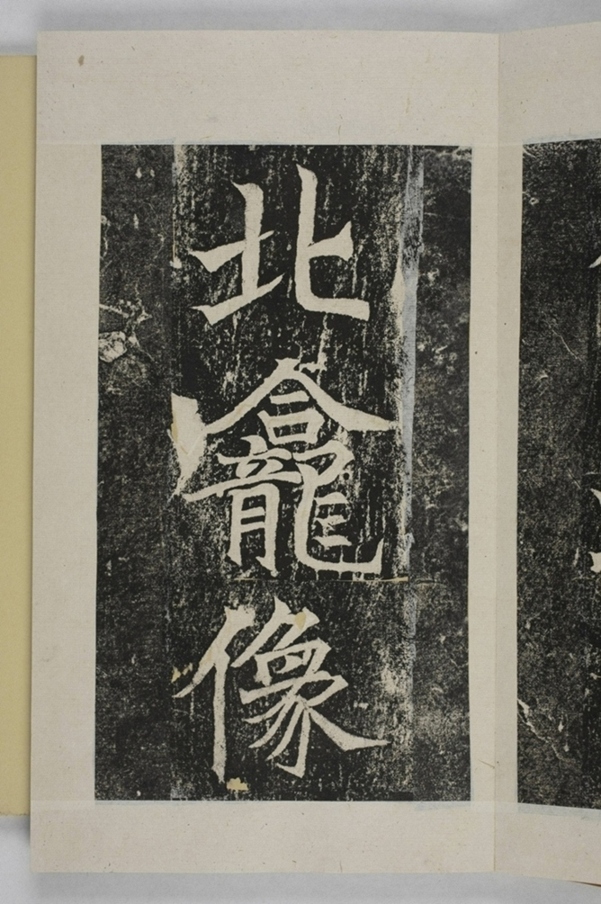 北龕像